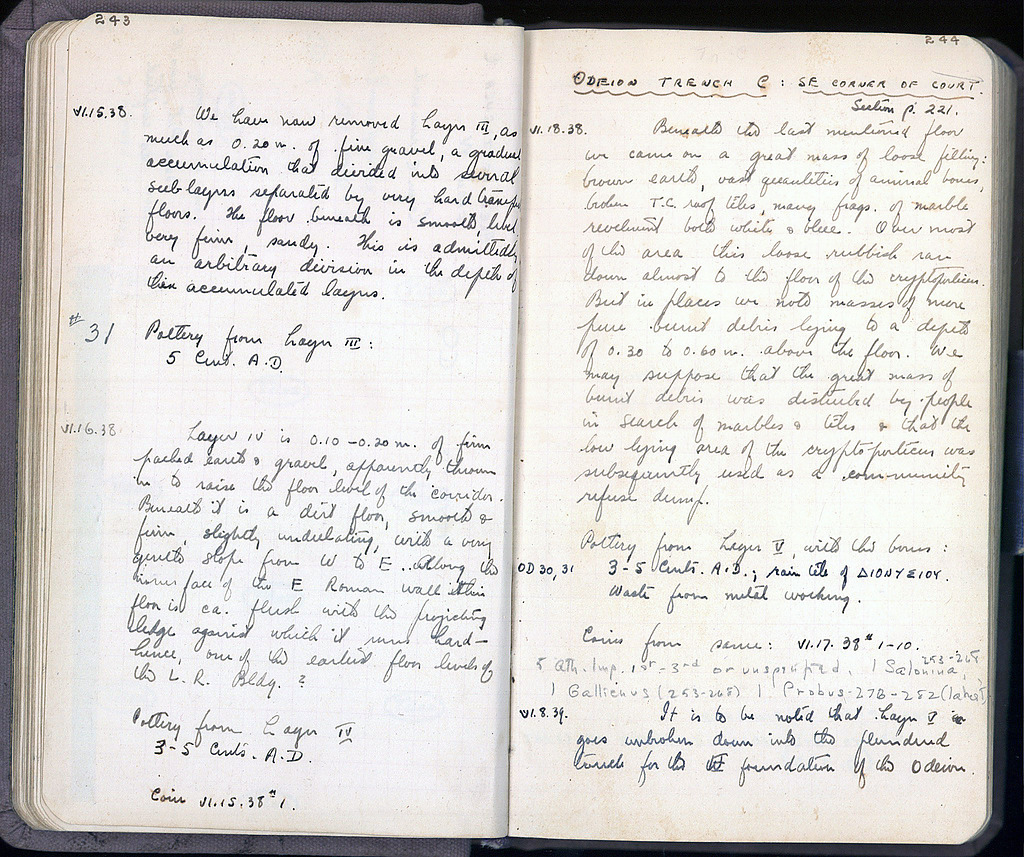 243
VI.15.38.
We have now removed Layer III, as
much as 0.20 m. of fine gravel, a gradual
accumulation that divided into several
sub layers separated by very hard
floors. The floor beneath is smooth, level
very firm, sandy. This is admittedly
an arbitrary division in the depth of
this accumulated layers.
# 31
Pottery from Layer III:
5 Cent. A.D.
VI.16.38
Layer IV is 0.10 - 0.20 m. of firm
packed earth & gravel, apparently thrown
in to raise the floor level of the corridor.
Beneath it is a dirt floor, smooth &
firm, slightly undulating, with a very
gentle slope from W to E. Along the
inner face of the E Roman wall this
floor is ca. flush with the projecting
ledge against which it runs hard -
hence, one of the earliest floor levels of
the L. R. Bldg. ?
Pottery from Layer IV
3-5 Cents. A.D.
Coin VI.15.38 # 1.
244
ODEION TRENCH C : SE CORNER OF COURT.
Section p. 221.
VI.18.38.
Beneath the last mentioned floor
we came on a great mass of loose filling:
brown earth, vast quantities of animal bones,
broken T.C. roof tiles, many frags. of marble
revetment both white & blue. Over most
of the area this loose rubbish ran
down almost to the floor of the cryptoporticus.
But in places we note masses of more
pure burnt debris lying to a depth
of 0.30 to 0.60 m. above the floor. We
may suppose that the great mass of
burnt debris was disturbed by people
in search of marbles & tiles & that the
low lying area of the cryptoporticus was
subsequently used as a community
refuse dump.
Pottery from Layer V, with the bones:
OD 30, 31
3-5 Cents. A.D.; rain tile of ΔΙΟΝΥΣΙΟΥ.
Waste from metal working.
Coins from same: VI.17.38 # 1-10.
5 Ath. Imp. 1st - 3rd or unspecified, 1 Salonina 253-268,
1 Gallienus (253-268) 1 Probus - 276-282 (latest)
VI.8.39.
It is to be noted that Layer V
goes unbroken down into the plundered
trench for the foundation of the Odeion.